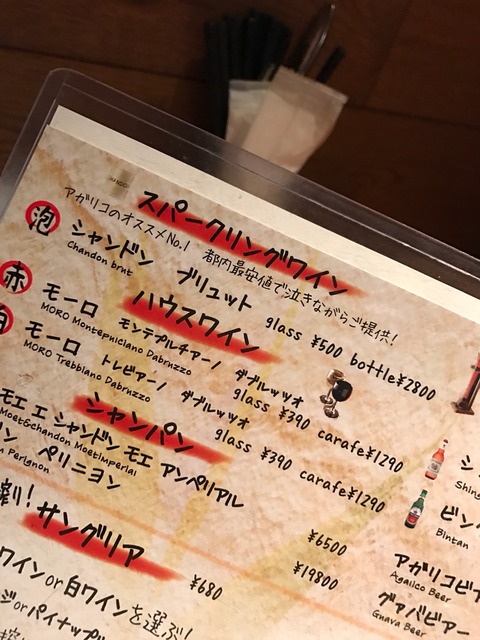 スパークリングワイン
アガリコのオススメNo.1 都内最安値で泣きながらご提供!
泡 シャンドン ブリュット glass ¥500 bottle¥2800
Chandon brut
ハウスワイン
赤 モーロ モンテプルチアーノ ダブルッツオ glass ¥390 carafe¥1290
MORO Montepulciano Dabruzzo
モーロ トレビアーノ ダブルッツオ glass ¥390 carafe¥1290
MORO Trebbiano Dabruzzo
シャンパン
モエ エ シャンドン モエ アンペリアル ¥6500
Moet&chandon MoetImperial
ン ペリニヨン ¥19800
Perignon
劇! サングリア ¥680
ワイン or 白ワインを選ぶ!
ジ or パイナップル
シ
Sing
ビン
Bintan
アガリコビア
Agalico Beer
グァバビアー
Guava Beer